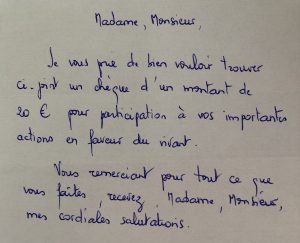 Madame, Monsieur,
Je vous prie de bien vouloir trouver
ci-joint un chèque d'un montant de
20 € pour participation à vos importantes
actions en faveur du vivant.
Vous remerciant pour tout ce que
vous faîtes, recevez, Madame, Monsieur,
mes cordiales salutations.